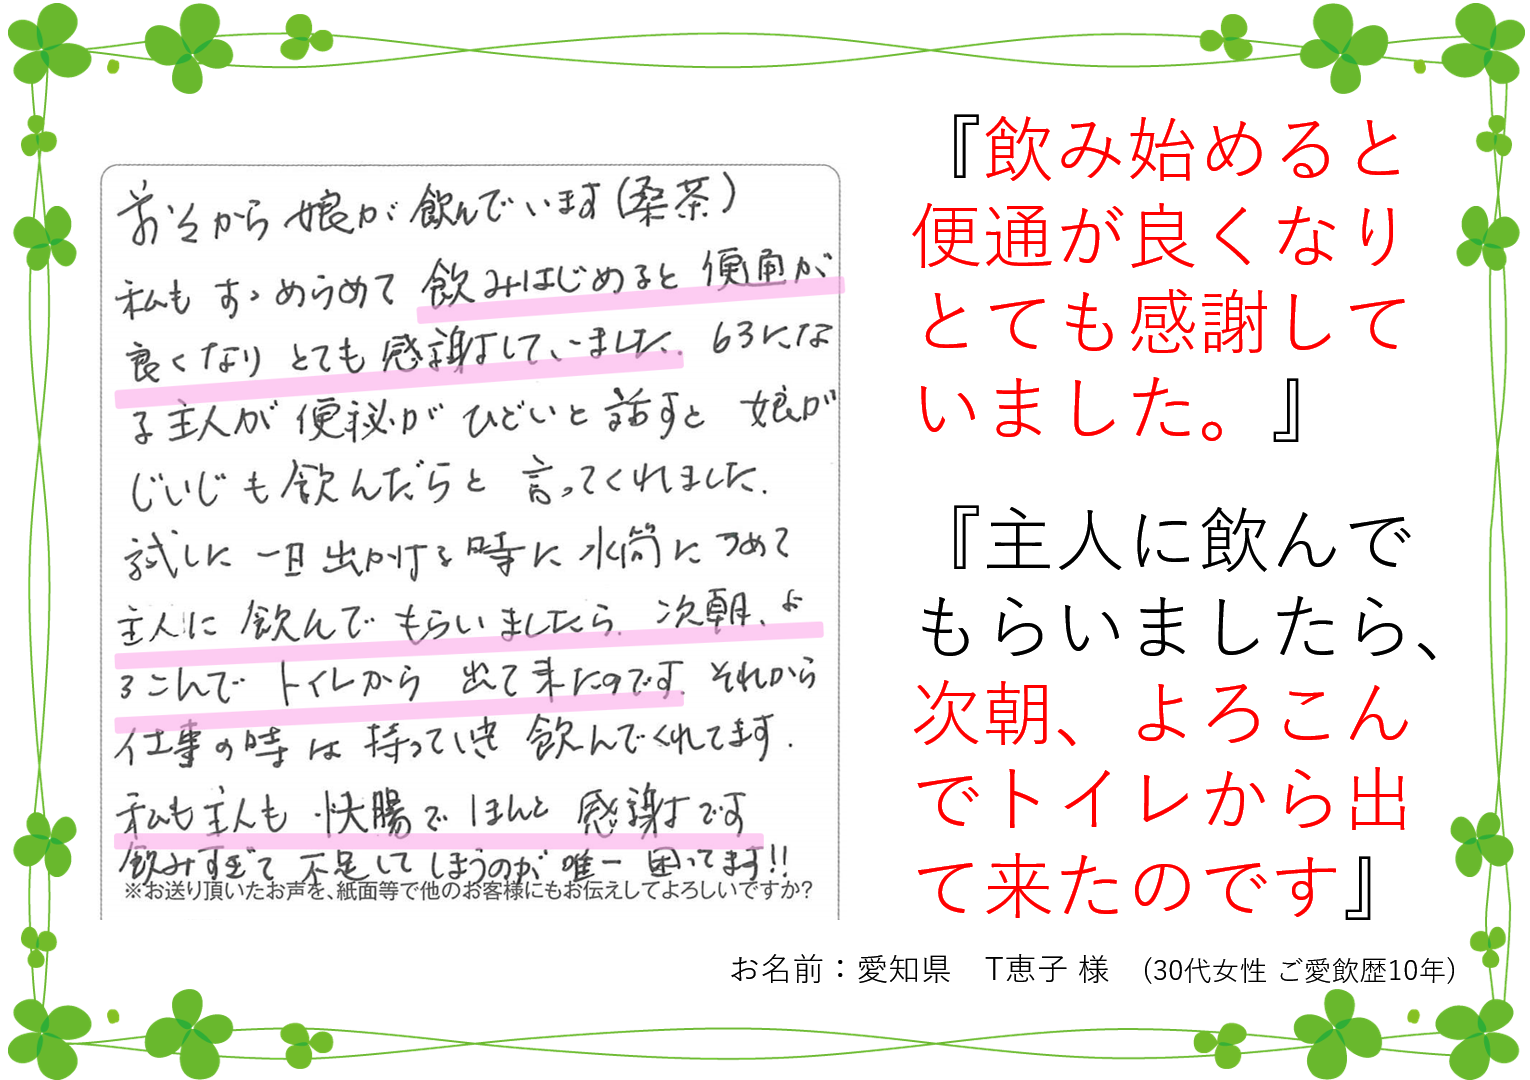 前々から娘が飲んでいます(桑茶)
私もすゝめらめて飲みはじめると便通が
良くなりとても感謝していました。63にな
る主人が便秘がひどいと話すと娘が
じいじも飲んだらと言ってくれました.
試しに一旦出かける時に水筒につめて
主人に飲んでもらいましたら.次朝、よ
ろこんでトイレから出て来たのです.それから
仕事の時は持っていき飲んでくれてます.
私も主人も快腸でほんと感謝です
飲みすぎて不足してしまうのが唯一困ってます!!
※お送り頂いたお声を、紙面等で他のお客様にもお伝えしてよろしいですか?
『飲み始めると
便通が良くなり
とても感謝して
いました。』
『主人に飲んで
もらいましたら、
次朝、よろこん
でトイレから出
て来たのです』
お名前：愛知県　T恵子 様　(30代女性 ご愛飲歴10年)